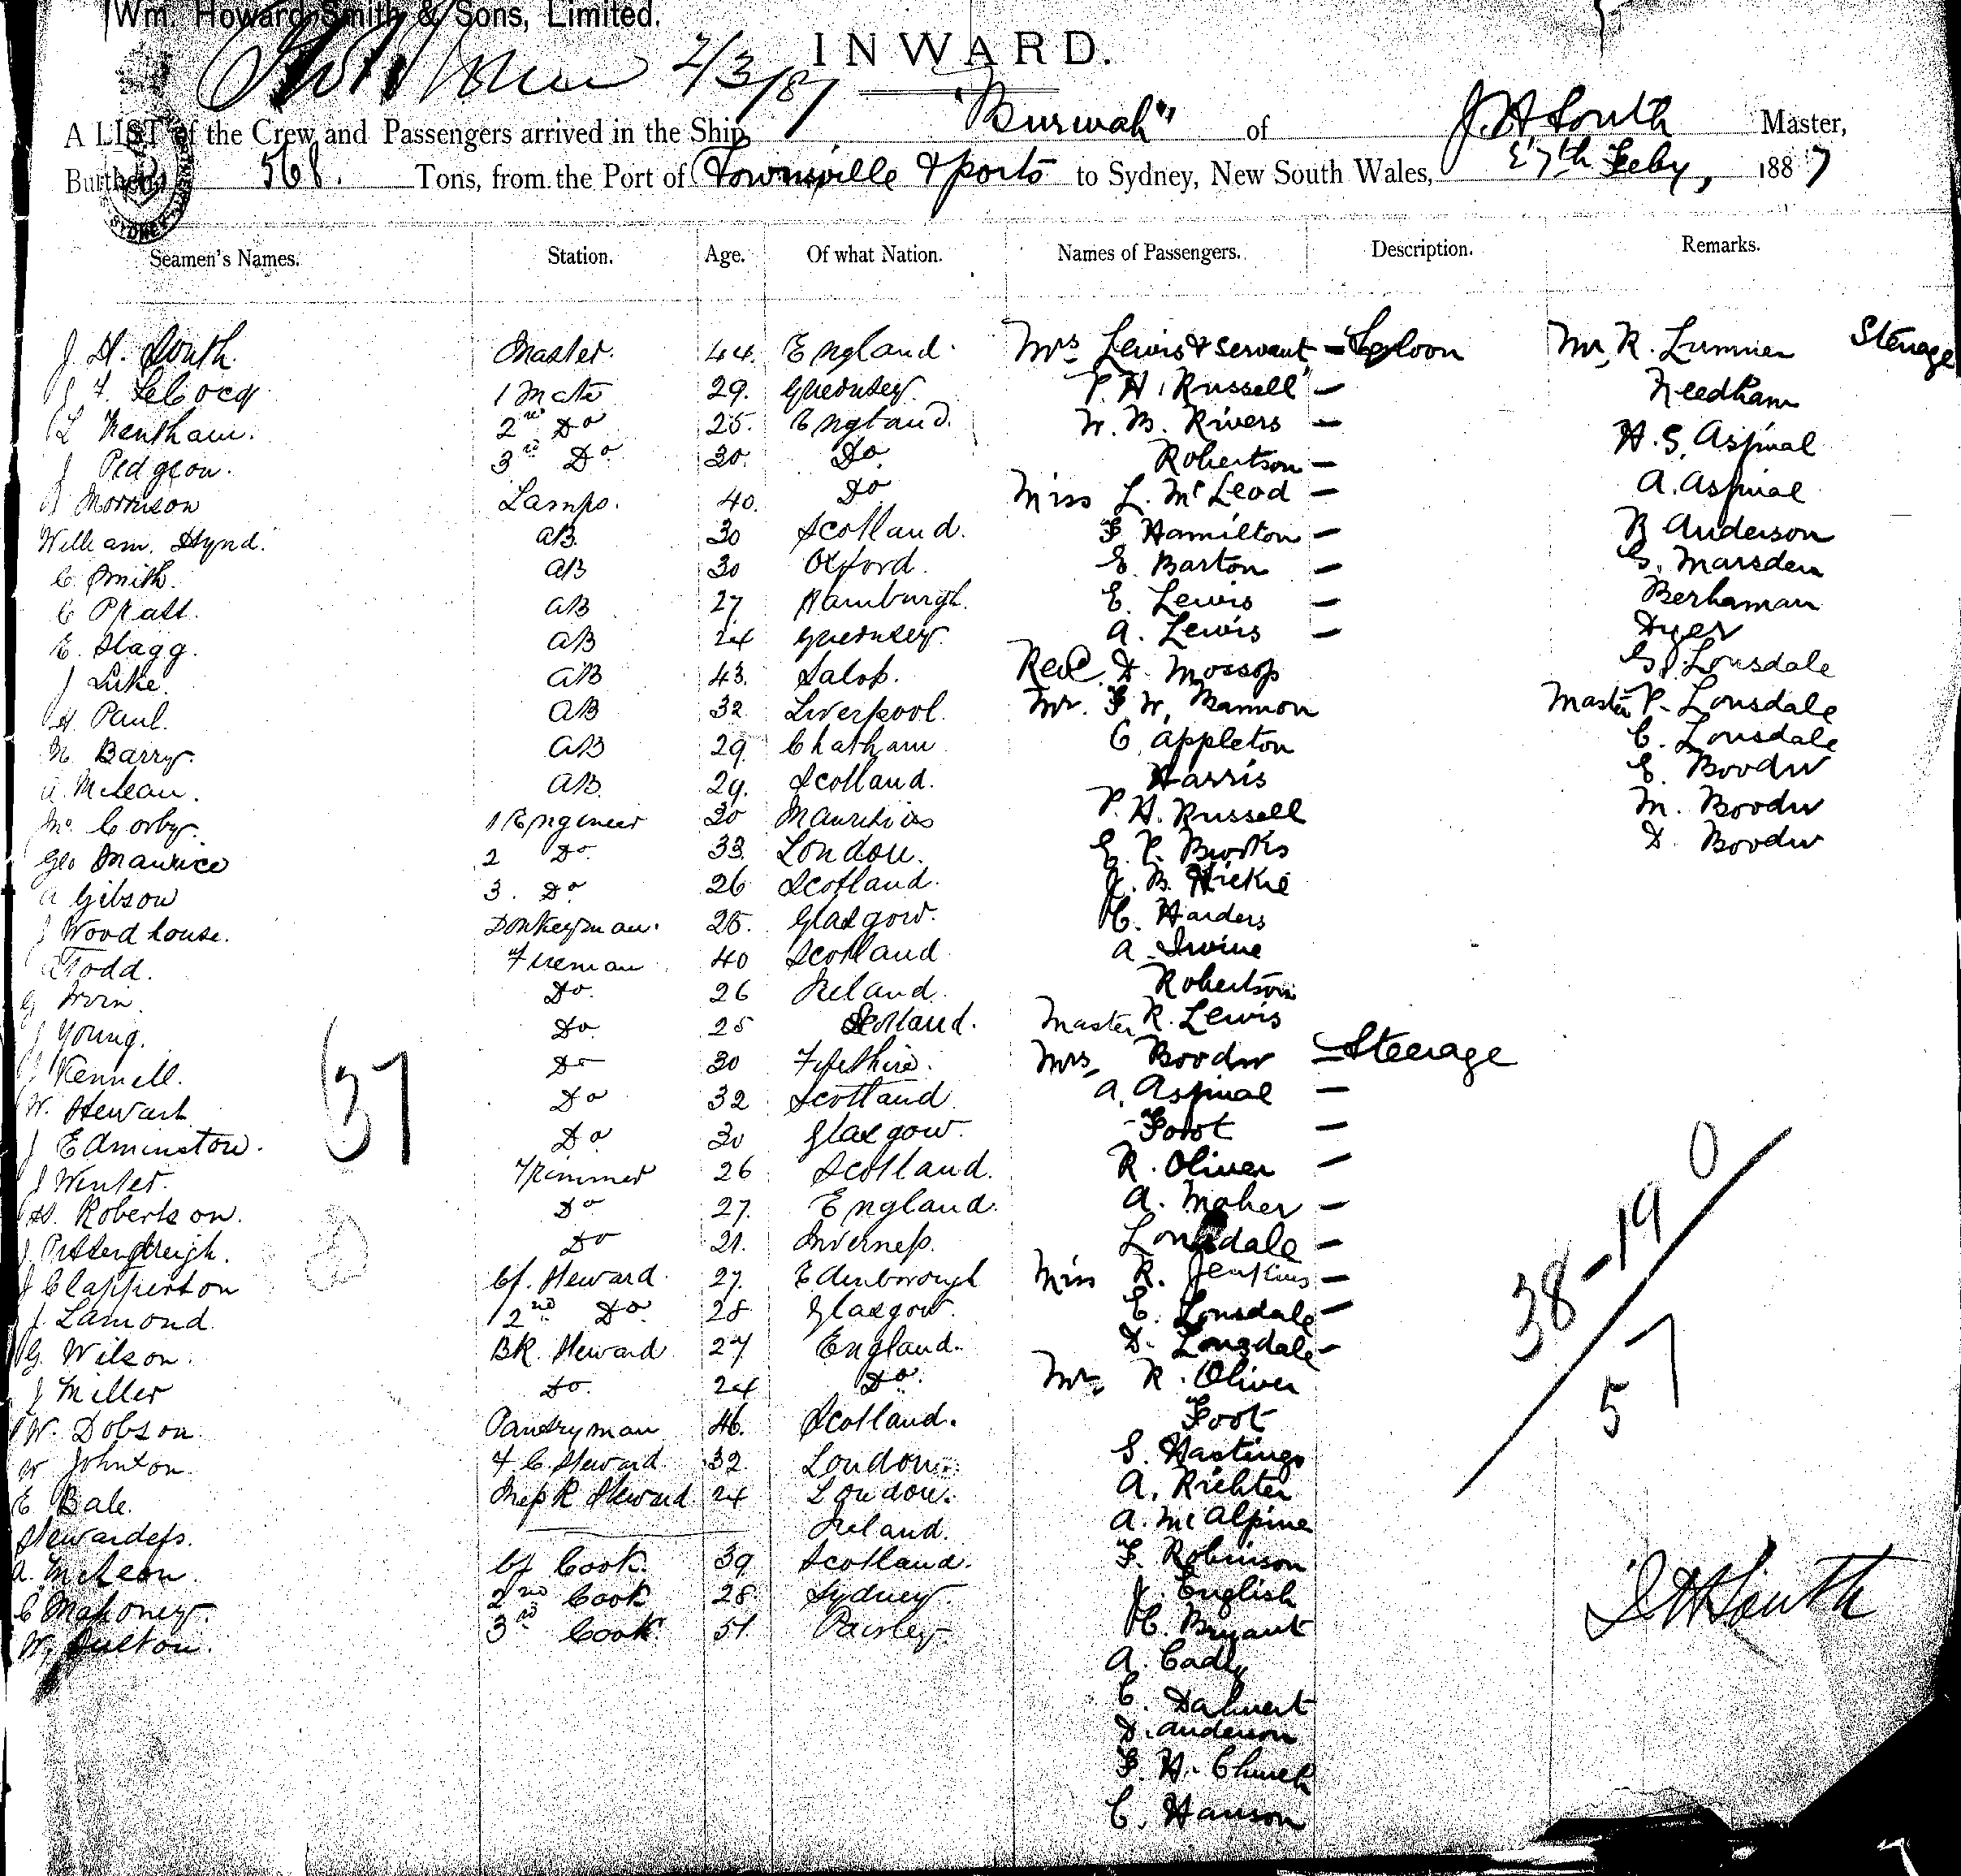 Wm. Howard Smith & Sons, Limited.
INWARD.
2/3/87
A LIST of the Crew and Passengers arrived in the Ship "Burwah" of J. H. South Master,
Burthen 568. Tons, from the Port of Townsville & ports to Sydney, New South Wales, 27th Feby, 1887
Seamen's Names. Station. Age. Of what Nation. Names of Passengers. Description. Remarks.
J. H. South Master. 44. England. Mrs Lewis & Servant - Saloon Mr. R. Steerage
J F. LeCocq 1 Mate 29. Guernsey. P. H. Russell - Needham
L Kentham. 2nd Do 25. England. W. B. Rivers - H. S. Aspinal
J Pidgeon. 3rd Do 30. Do Robertson - A. Aspinal
Morrison Lamps. 40. Do Miss L. McLeod - R Anderson
William. Hynd. AB. 30 Scotland. F. Hamilton - G. Marsden
C Smith. AB 30 Oxford. E. Barton - Berhaman
C Pratt. AB 27. Hamburgh. E. Lewis - Dyer
E. Stagg. AB 24 Guernsey. A. Lewis - G Lonsdale
J Luke. AB 43. Salop. Revd. D. Mossop Master P. Lonsdale
H. Paul. AB 32 Liverpool. Mr. F. W. Bannon C. Lonsdale
N. Barry. AB 29. Chatham C. Appleton E. Boodw
A. McLean. AB. 29. Scotland. Harris M. Boodw
Mc. Corby. 1 Engineer 30 Mauritius P. H. Russell D. Boodw
Geo Maurice 2 Do. 33. London. E. P. Brooks
A Gibson 3. Do 26 Scotland. J. B. Hickie
J Woodhouse. Donkeyman. 25. Glasgow. C. Harders
Todd. Fireman 40 Scotland A. Irvine
G Irvin. Do. 26 Ireland. Robertson
J Young. Do 25 Scotland. Master R. Lewis
J Kennell. Do 30 Fifeshire. Mrs Boodw - Steerage
W. Stewart Do 32 Scotland. A. Aspinal -
J Edminston. Do 30 Glasgow. Foot -
J Winter. Trimmer 26 Scotland. R. Oliver -
H. Robertson. Do 27. England. A. Maher -
J Do 21. Inverness. Lonsdale -
J Clapperton Cf. Steward. 27. Edinborough Miss R. Jenkins -
J. Lamond. 2nd Do 28 Glasgow. E. Lonsdale -
G. Wilson. BR. Steward 27 England. D. Lonsdale -
J Miller Do. 24 Do. Mr. R. Oliver
W. Dobson Pantryman 46. Scotland. Foot
W Johnton. F. C. Steward. 32. London. S. Hastings
E Bale. MessR Steward 24 London. A. Richter
Stewardess. Ireland. A. McAlpine
A. McLean. Cf Cook. 39. Scotland. F. Robinson
C Mahoney. 2nd Cook 28. Sydney. J. English
W. Fulton. 3rd Cook. 51. Paisley. H. Bryant
A. Cadly
C. Dahwert
D. Anderson
F. H. Church
C. Hanson
37
38-19 0
57
J H South